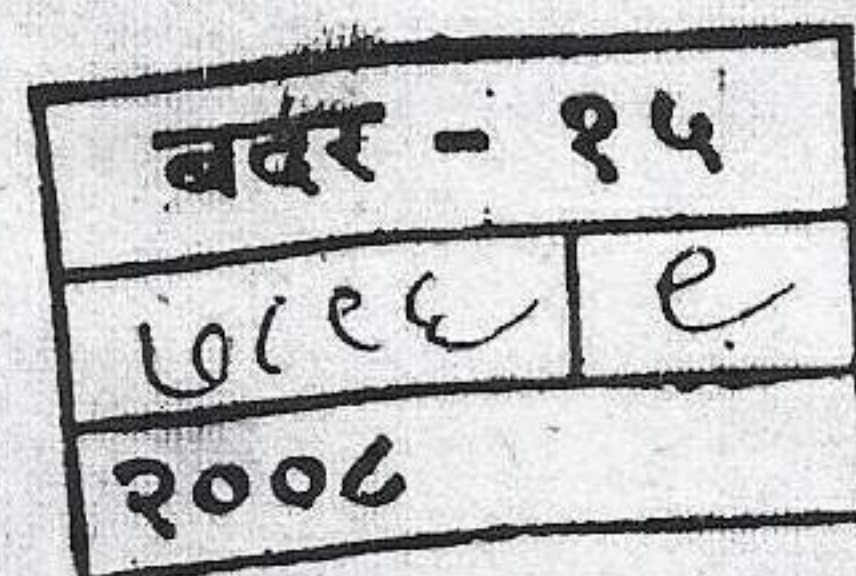 बदर - १५
७८१६ १
२००८